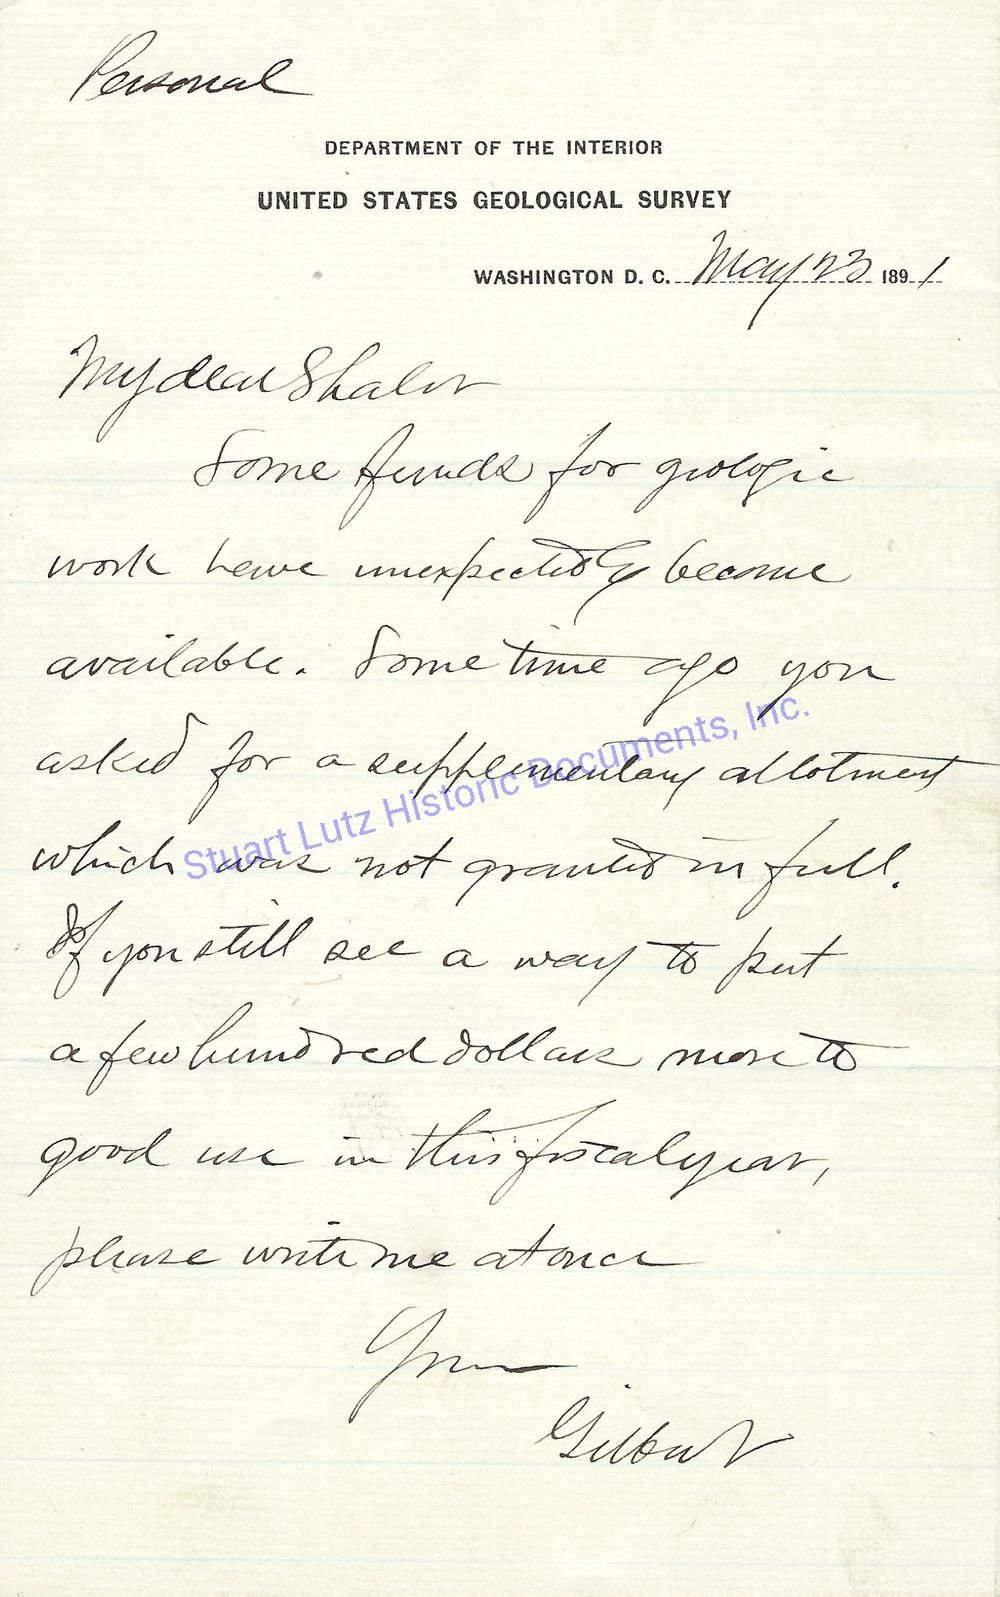 Personal
DEPARTMENT OF THE INTERIOR
UNITED STATES GEOLOGICAL SURVEY
WASHINGTON D. C. May 23 1891
My dear Shaler
Some funds for geologic
work have unexpectedly become
available. Some time ago you
asked for a supplementary allotment
which was not granted in full.
If you still see a way to put
a few hundred dollars more to
good use in this fiscal year,
please write me at once
Yours
Gilbert
Stuart Lutz Historic Documents, Inc.